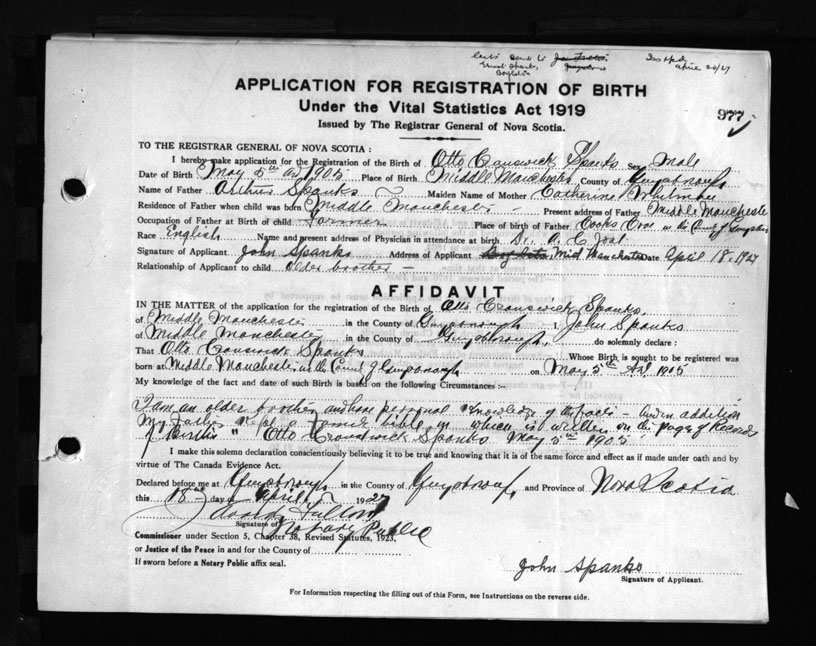 April 20/27
APPLICATION FOR REGISTRATION OF BIRTH
Under the Vital Statistics Act 1919
977
Issued by The Registrar General of Nova Scotia.
TO THE REGISTRAR GENERAL OF NOVA SCOTIA :
I hereby make application for the Registration of the Birth of Otto Cranswick Spanks Sex Male
Date of Birth May 5th AD 1905 Place of Birth Middle Manchester County of Guysborough
Name of Father Arthur Spanks Maiden Name of Mother Catherine Whitman
Residence of Father when child was born Middle Manchester Present address of Father Middle Manchester
Occupation of Father at Birth of child Farmer Place of birth of Father Cooks Cove in the County of Guysboro
Race English Name and present address of Physician in attendance at birth Dr. A. C. Jost
Signature of Applicant John Spanks Address of Applicant Mid Manchester Date April 18, 1927
Relationship of Applicant to child older brother
AFFIDAVIT
IN THE MATTER of the application for the registration of the Birth of Otto Cranswick Spanks,
of Middle Manchester in the County of Guysborough I, John Spanks
of Middle Manchester in the County of Guysborough, do solemnly declare :
That Otto Cranswick Spanks Whose Birth is sought to be registered was
born at Middle Manchester in the County of Guysborough on May 5th AD, 1905
My knowledge of the fact and date of such Birth is based on the following Circumstances :-
I am an older brother and have personal knowledge of the facts - and in addition
My Father kept a Family bible in which is written on the page of Records
of Births " Otto Cranswick Spanks May 5th 1905 "
I make this solemn declaration conscientiously believing it to be true and knowing that it is of the same force and effect as if made under oath and by
virtue of The Canada Evidence Act.
Declared before me at Guysborough in the County of Guysborough, and Province of Nova Scotia
this 18th day of April 1927
Fulton
Signature of Notary Public
Commissioner under Section 5, Chapter 38, Revised Statutes, 1923.
or Justice of the Peace in and for the County of
If sworn before a Notary Public affix seal.
John Spanks
Signature of Applicant.
For Information respecting the filling out of this Form, see Instructions on the reverse side.